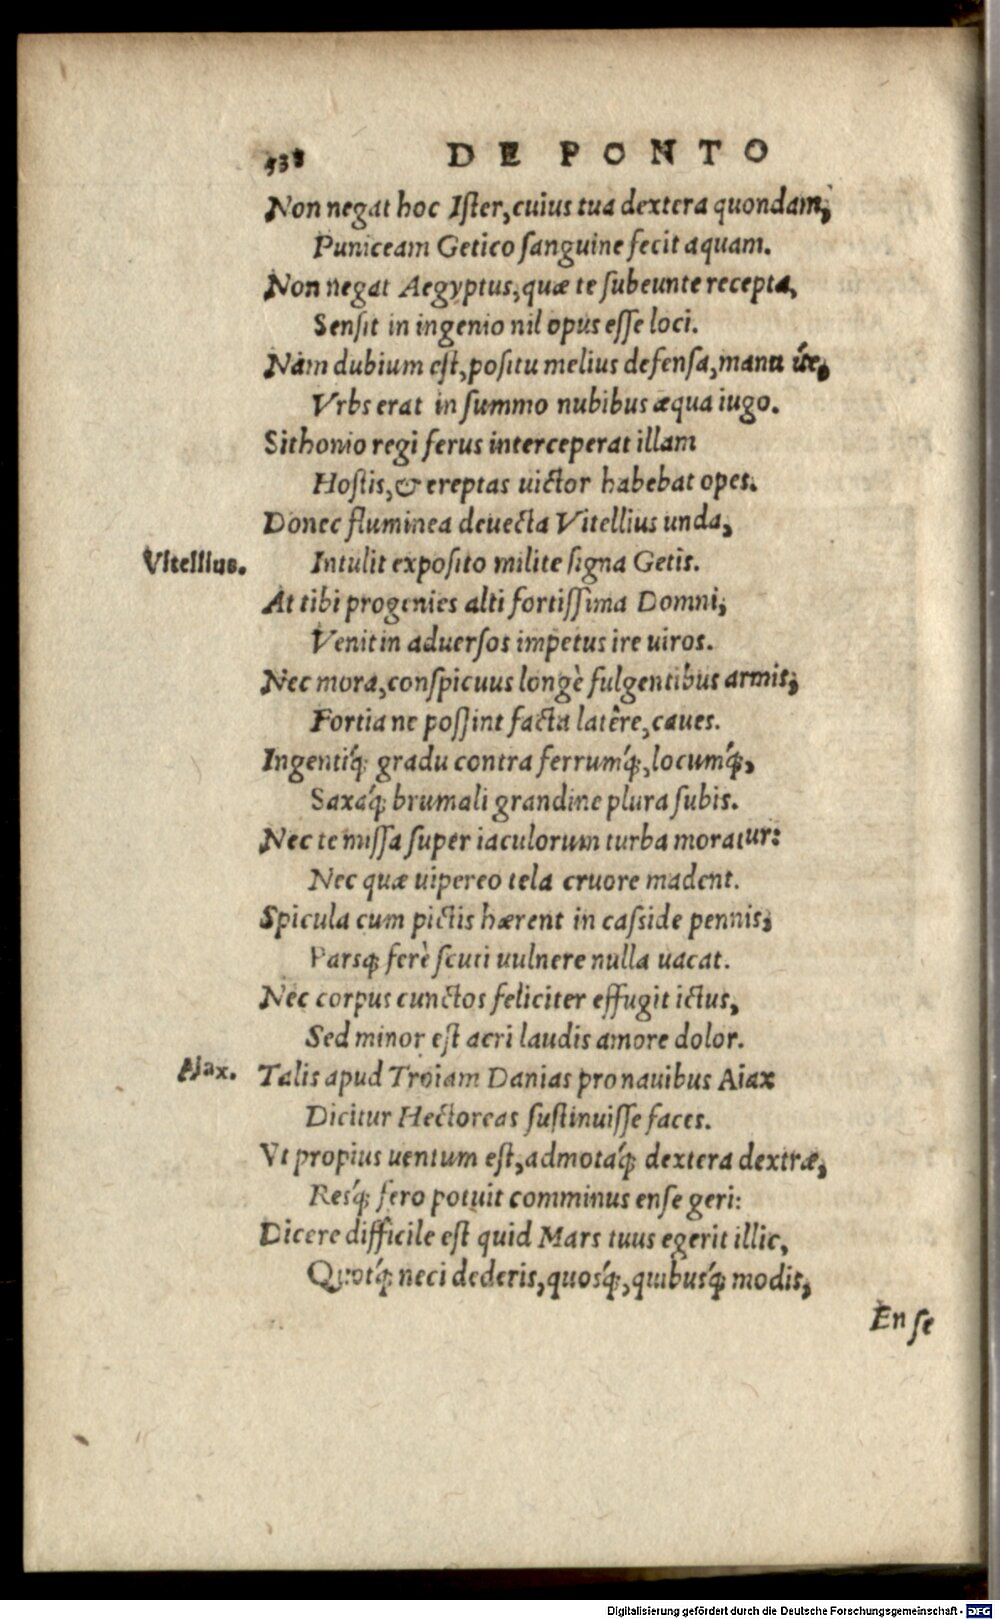 538 DE PONTO
Non negat hoc Iſter, cuius tua dextera quondam;
Puniceam Getico ſanguine fecit aquam.
Non negat Aegyptus, quæ te ſubeunte recepta,
Senſit in ingenio nil opus eſſe loci.
Nam dubium eſt, poſitu melius defenſa, manu úe,
Vrbs erat in ſummo nubibus æqua iugo.
Sithonio regi ferus interceperat illam
Hoſtis, & ereptas uictor habebat opes.
Donec fluminea deuecta Vitellius unda,
Vitellius. Intulit expoſito milite ſigna Getis.
At tibi progenies alti fortiſſima Domni;
Venit in aduerſos impetus ire uiros.
Nec mora, conſpicuus longè fulgentibus armis;
Fortia ne poſſint facta latêre, caues.
Ingentiq́; gradu contra ferrumq́;, locumq́;,
Saxaq́; brumali grandine plura ſubis.
Nec te miſſa ſuper iaculorum turba moratur:
Nec quæ uipereo tela cruore madent.
Spicula cum pictis hærent in caſside pennis;
Parsq; ferè ſcuti uulnere nulla uacat.
Nec corpus cunctos feliciter effugit ictus,
Sed minor eſt acri laudis amore dolor.
Aiax. Talis apud Troiam Danias pro nauibus Aiax
Dicitur Hectoreas ſuſtinuiſſe faces.
Vt propius uentum eſt, admotaq́; dextera dextræ,
Resq́; fero potuit comminus enſe geri:
Dicere difficile eſt quid Mars tuus egerit illic,
Quotq́; neci dederis, quosq́;, quibusq́; modis;
En ſe
Digitalisierung gefördert durch die Deutsche Forschungsgemeinschaft - DFG